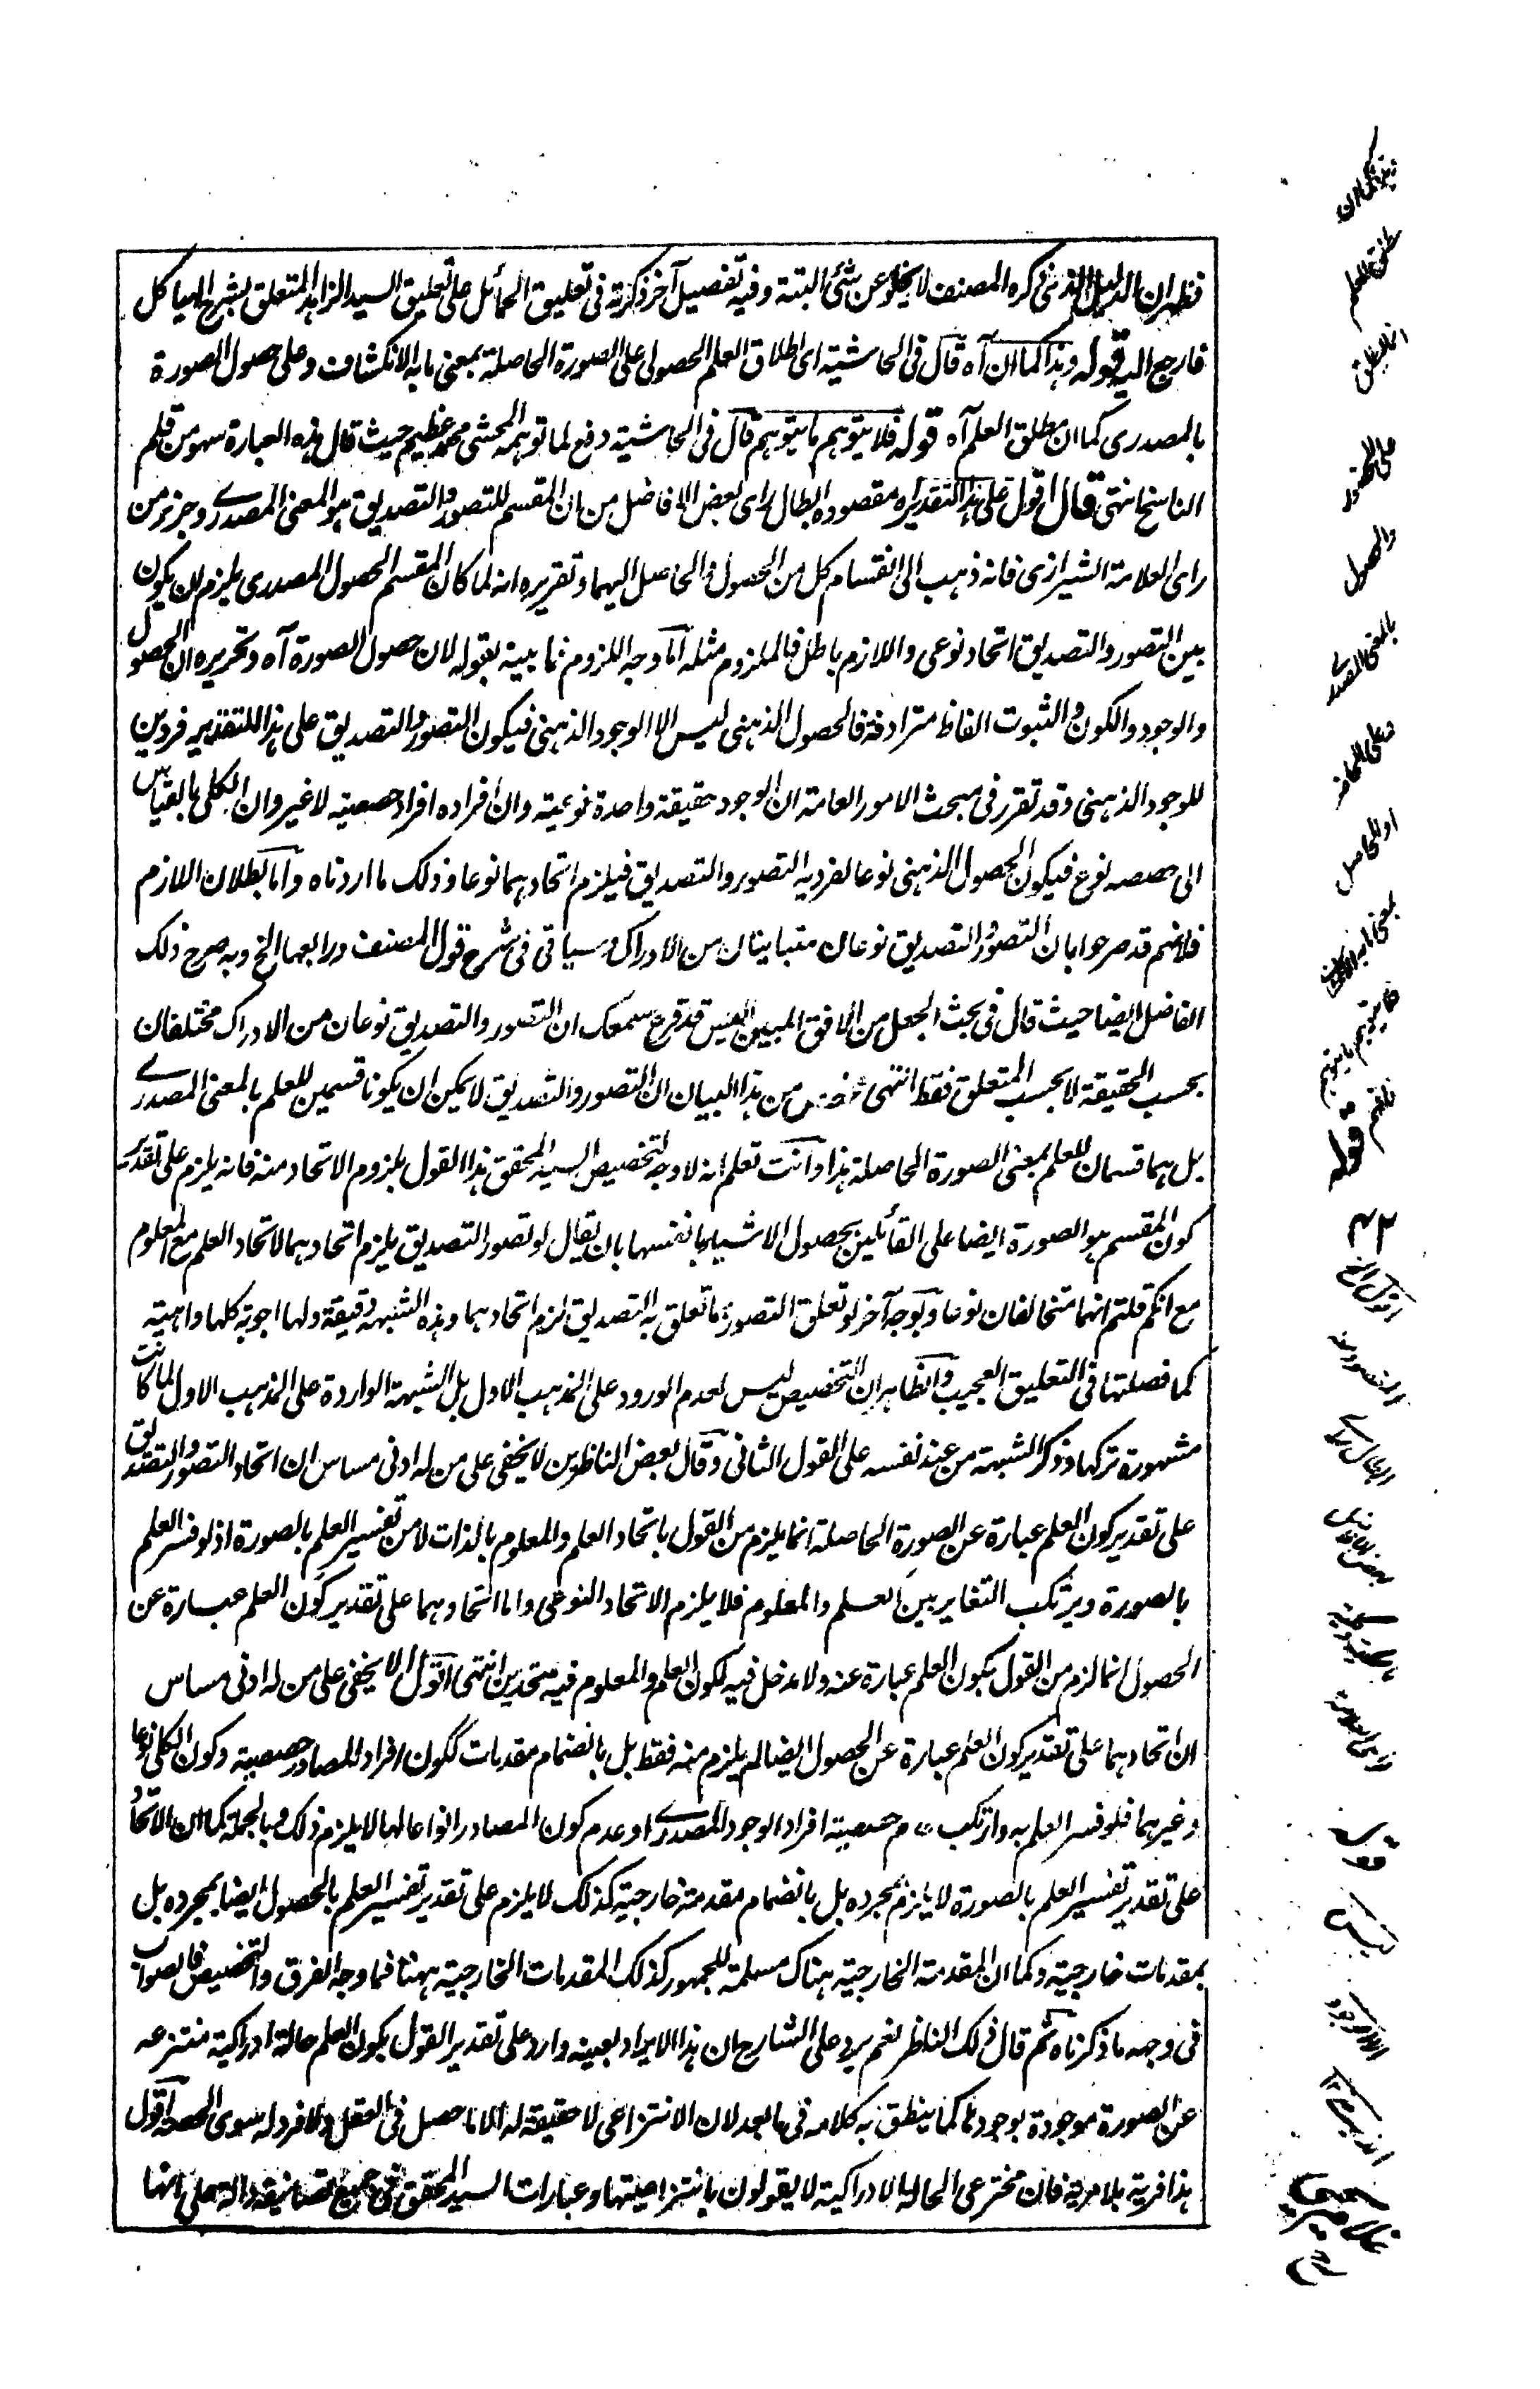 فظهر ان الدليل الذي ذكره المصنف لا يخلو عن شئ البتة وفيه تفصيل آخر ذكرته في تعليق الحمائل على تعليق السيد الزاهد المتعلق بشرح الهياكل
فارجع اليه قوله وهذا كما ان آه قال في الحاشية اى اطلاق العلم الحصولى على الصورة الحاصلة بمعنى ما به الانكشاف وعلى حصول الصورة
بالمصدرى كما ان مطلق العلم آه قوله فلا يتوهم ما يتوهم قال في الحاشية دفع لما توهمه المحشى محمد عظيم حيث قال هذه العبارة سهو من قلم
الناسخ انتهى قال اقول على هذا التقدير آه مقصوده ابطال راى بعض الافاضل من ان المقسم للتصور والتصديق هو المعنى المصدرے وجزء من
راى العلامة الشيرازى فانه ذهب الى انقسام كل من الحصول والحاصل اليهما وتقريره انه لما كان المقسم الحصول المصدرى يلزم ان يكون
بين التصور والتصديق اتحاد نوعى واللازم باطل فالملزوم مثله اما وجه اللزوم فما بينه بقوله لان حصول الصورة آه وتحريره ان الحصول
والوجود والكون والثبوت الفاظ مترادفة فالحصول الذهنى ليس الا الوجود الذهنى فيكون التصور والتصديق على هذا التقدير فردين
للوجود الذهنى وقد تقرر في مبحث الامور العامة ان الوجود حقيقة واحدة نوعية وان افراده افراد حصصية لا غير وان الكلى بالقياس
الى حصصه نوع فيكون الحصول الذهنى نوعا لفرديه التصور والتصديق فيلزم اتحادهما نوعا وذلك ما اردناه واما بطلان اللازم
فلانهم قد صرحوا بان التصور والتصديق نوعان متباينان من الادراك وسياتى فى شرح قول المصنف ورابعها الخ وبه صرح ذلك
الفاضل ايضا حيث قال فى بحث الجعل من الافق المبين اليس قد قرع سمعك ان التصور والتصديق نوعان من الادراك مختلفان
بحسب الحقيقة لا بحسب المتعلق فقط انتهى من هذا البيان ان التصور والتصديق لا يمكن ان يكونا قسمين للعلم بالمعنى المصدرے
بل هما قسمان للعلم بمعنى الصورة الحاصلة هذا وانت تعلم انه لا وجه لتخصيص السيد المحقق هذا القول بلزوم الاتحاد منه فانه يلزم على تقدير
كون المقسم هو الصورة ايضا على القائلين بحصول الاشياء بانفسها بان يقال لو تصور التصديق يلزم اتحادهما لاتحاد العلم مع المعلوم
مع انكم قلتم انهما متخالفان نوعا وبوجه آخر لو تعلق التصور بما تعلق به التصديق لزم اتحادهما وهذه الشبهة دقيقة ولها اجوبة كلها واهية
كما فصلتها فى التعليق العجيب والظاهر ان التخصيص ليس لعدم الورود على المذهب الاول بل الشبهة الواردة على المذهب الاول لما كانت
مشهورة تركها وذكر الشبهة من عند نفسه على القول الثانى وقال بعض الناظرين لا يخفى على من له ادنى مساس ان اتحاد التصور والتصديق
على تقدير كون العلم عبارة عن الصورة الحاصلة انما يلزم من القول باتحاد العلم والمعلوم بالذات لا من تفسير العلم بالصورة اذ لو فسر العلم
بالصورة ويرتكب التغاير بين العلم والمعلوم فلا يلزم الاتحاد النوعى واما اتحادهما على تقدير كون العلم عبارة عن
الحصول انما لزم من القول بكون العلم عبارة عنه ولا دخل فيه لكون العلم والمعلوم فيه متحدين انتهى اقول الا يخفى على من له ادنى مساس
ان اتحادهما على تقدير كون العلم عبارة عن الحصول ايضا لم يلزم منه فقط بل بانضمام مقدمات ككون افراد المصادر حصصية وكون الكلى نوعا
وغيرهما فلو فسر العلم به وارتكب حصصية افراد الوجود المصدرے او عدم كون المصادر انواعا لها لا يلزم ذلك وبالجملة كما ان الاتحاد
على تقدير تفسير العلم بالصورة لا يلزم بمجرده بل بانضمام مقدمة خارجية كذلك لا يلزم على تقدير تفسير العلم بالحصول ايضا بمجرده بل
بمقدمات خارجية وكما ان المقدمة الخارجية هناك مسلمة للجمهور كذلك المقدمات الخارجية ههنا فما وجه الفرق والتخصيص فالصواب
فى وجهه ما ذكرناه ثم قال ذلك الناظر نعم يرد على الشارح ان هذا الايراد بعينه وارد على تقدير القول بكون العلم حالة ادراكية منتزعه
عن الصورة موجودة بوجودها كما ينطق به كلامه فى ما بعد لان الانتزاعى لا حقيقة له الا ما حصل فى العقل ولا فرد له سوى الحصة اقول
هذا فرية بلا مرية فان مخترعى الحالة الادراكية لا يقولون بانتزاعيتها وعبارات السيد المحقق فى جميع تصانيفه دالة على انها
مطلق العلم
والحصول
بالمعنى المصدرے
قوله